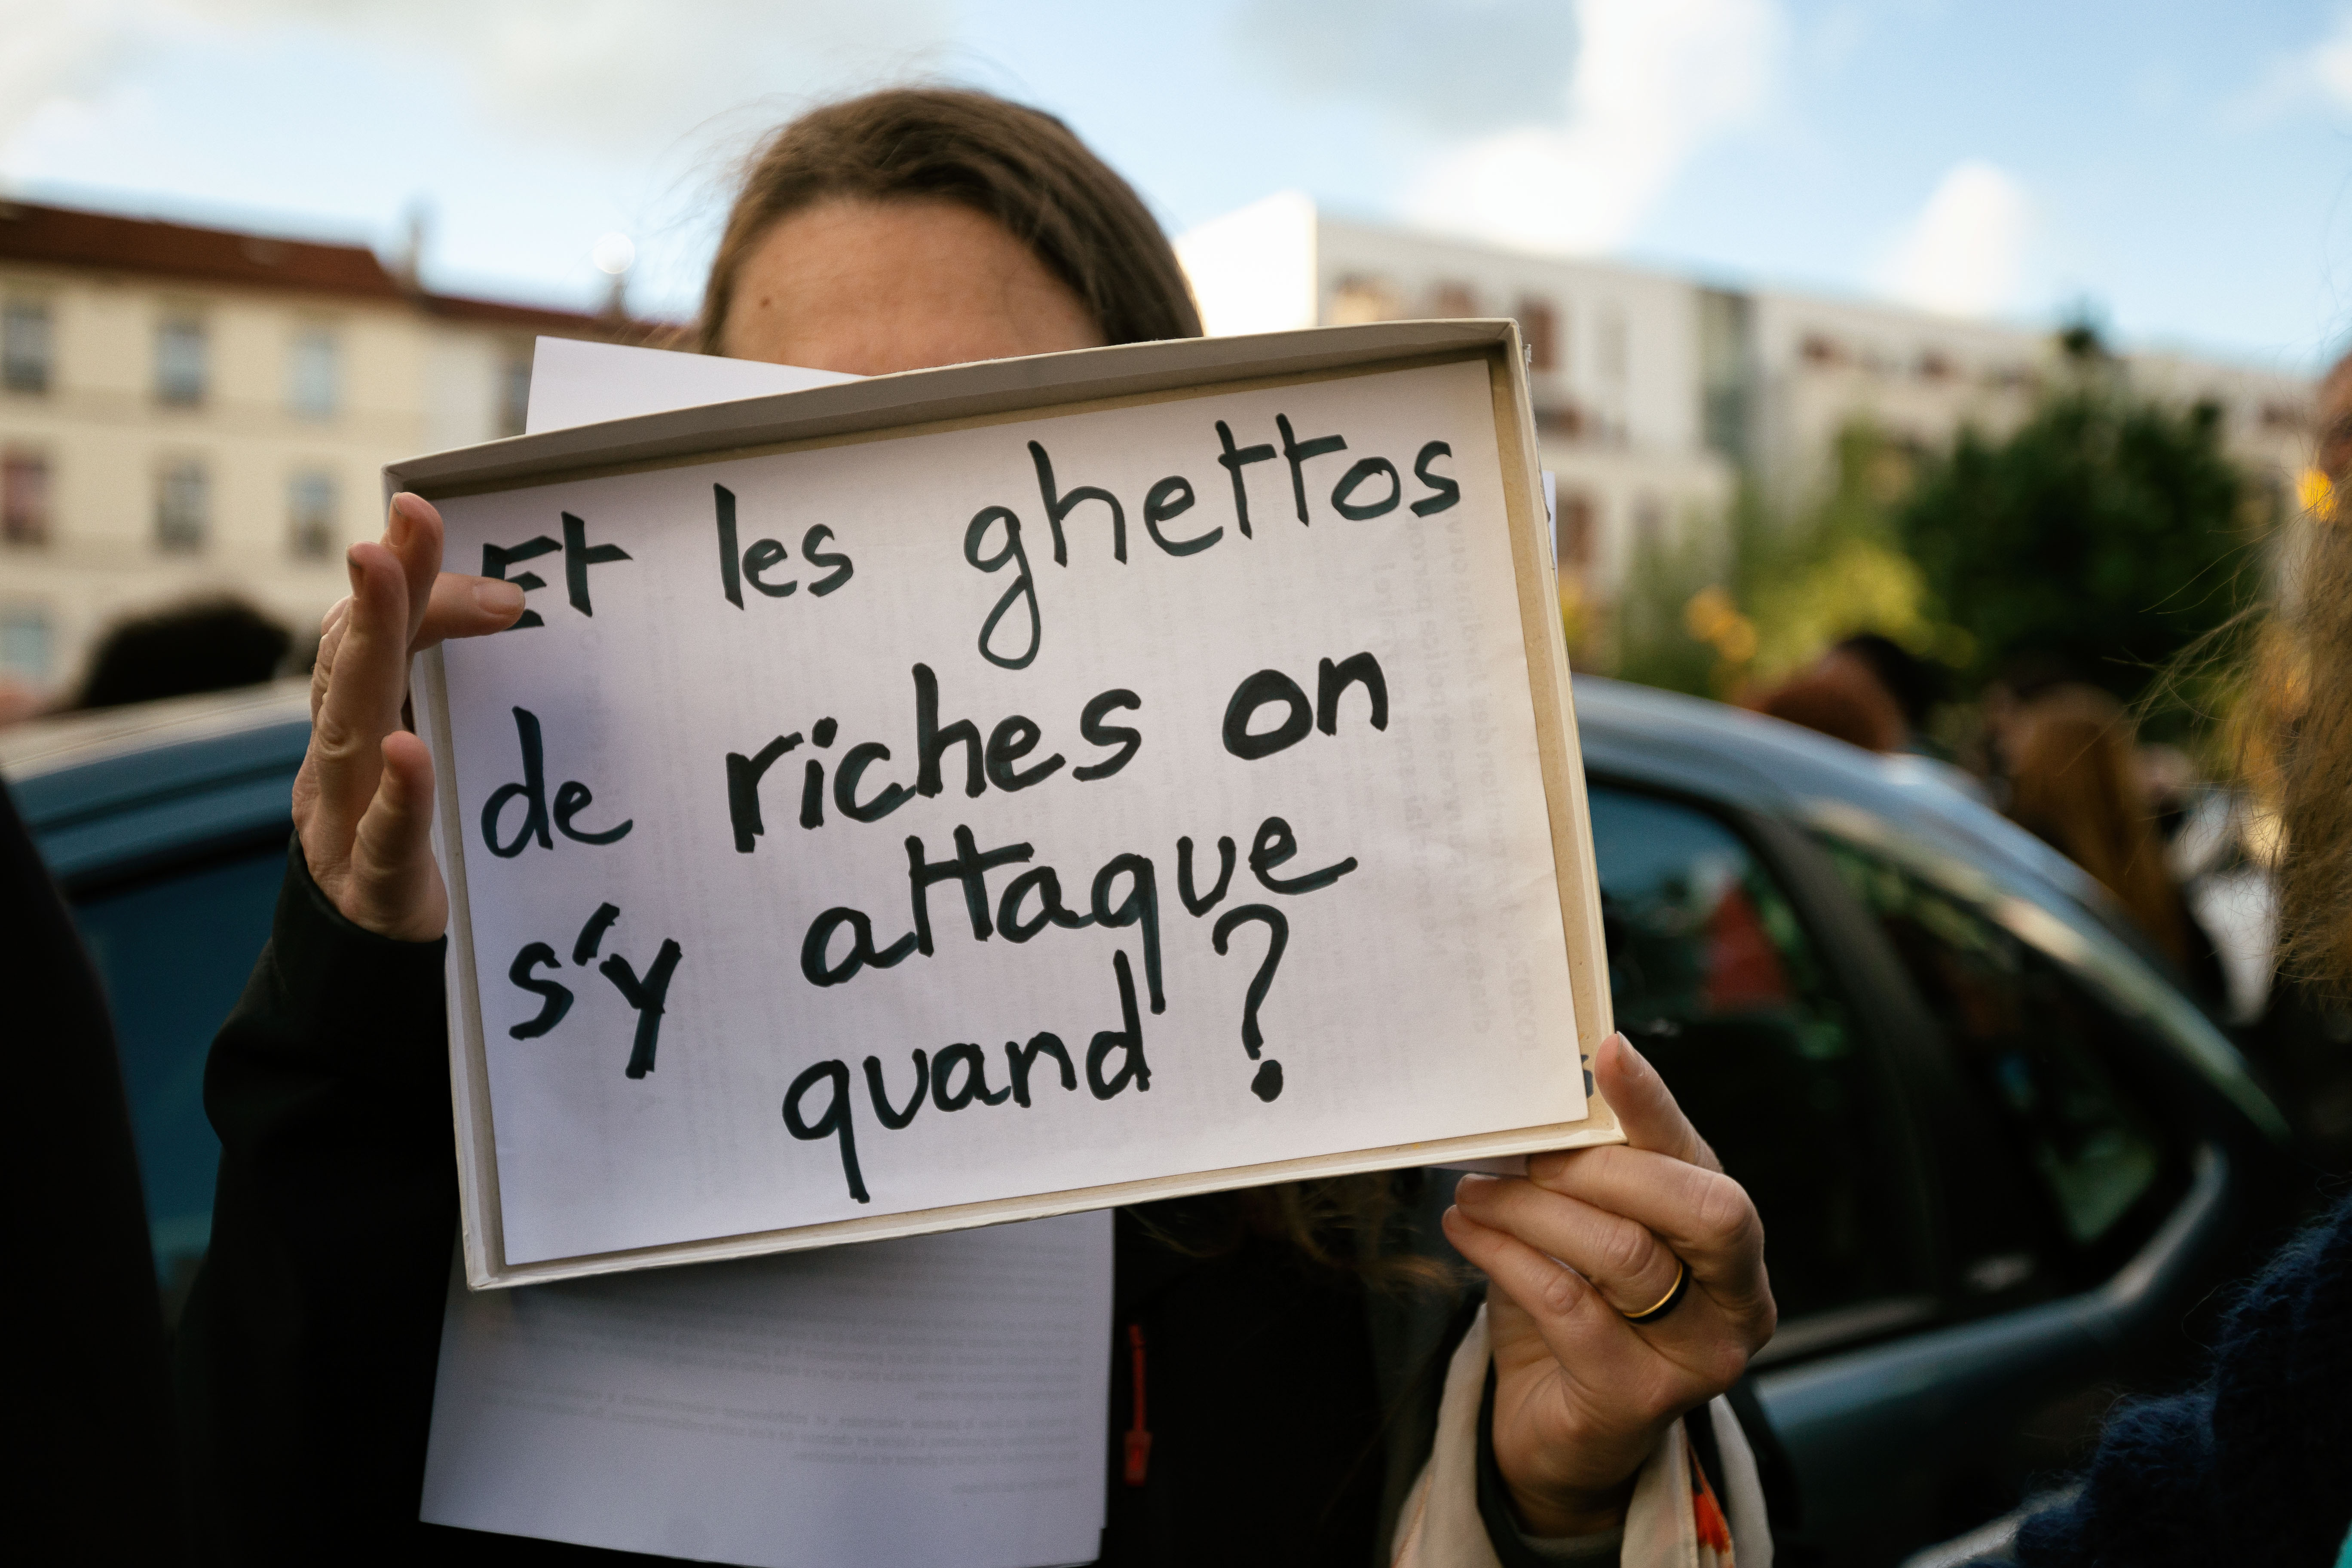 Et les ghettos
de riches on
s'y attaque
quand ?